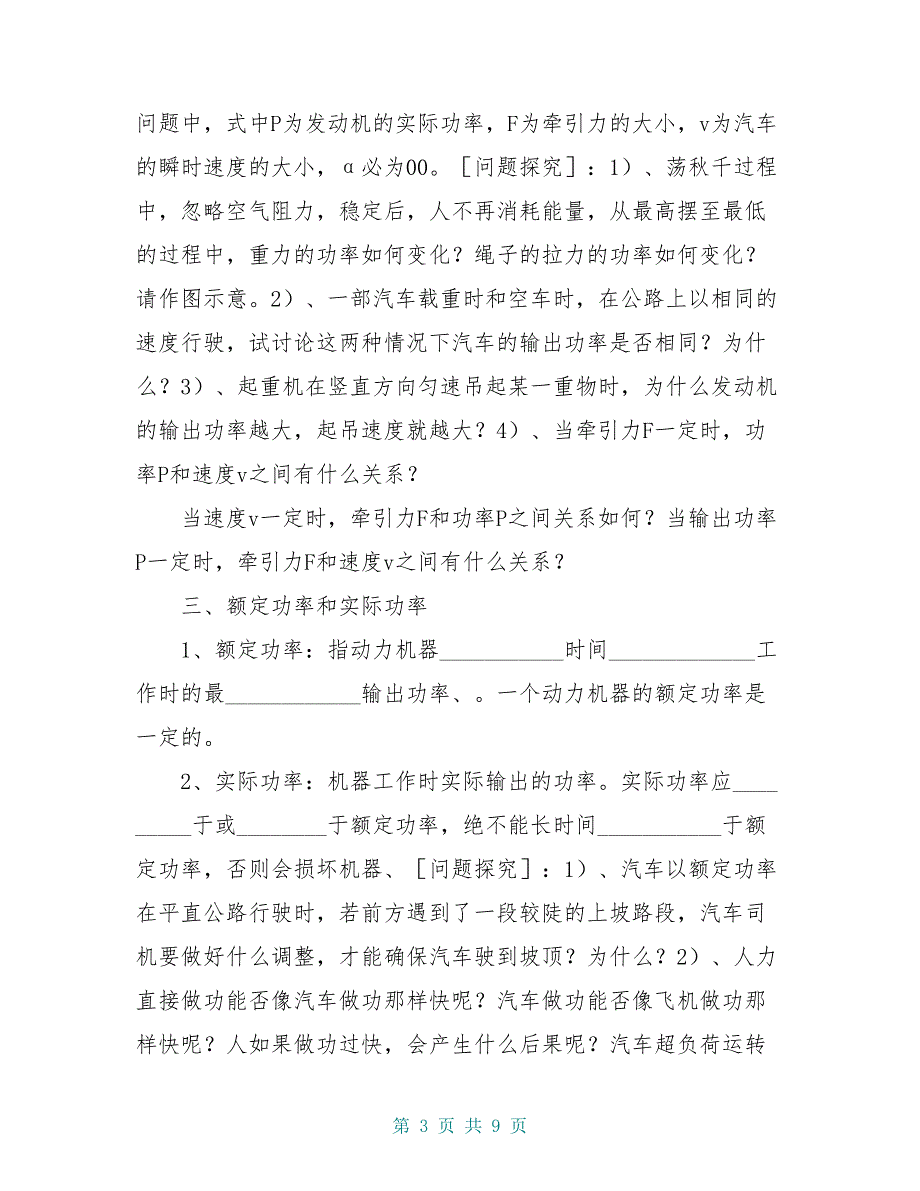 问题中，式中P为发动机的实际功率，F为牵引力的大小，v为汽车
的瞬时速度的大小，α必为00。［问题探究］：1）、荡秋千过程
中，忽略空气阻力，稳定后，人不再消耗能量，从最高摆至最低
的过程中，重力的功率如何变化？绳子的拉力的功率如何变化？
请作图示意。2）、一部汽车载重时和空车时，在公路上以相同的
速度行驶，试讨论这两种情况下汽车的输出功率是否相同？为什
么？3）、起重机在竖直方向匀速吊起某一重物时，为什么发动机
的输出功率越大，起吊速度就越大？4）、当牵引力F一定时，功
率P和速度v之间有什么关系？
当速度v一定时，牵引力F和功率P之间关系如何？当输出功率
P一定时，牵引力F和速度v之间有什么关系？
三、额定功率和实际功率
1、额定功率：指动力机器___________时间_____________工
作时的最____________输出功率、。一个动力机器的额定功率是
一定的。
2、实际功率：机器工作时实际输出的功率。实际功率应____
_____于或________于额定功率，绝不能长时间___________于额
定功率，否则会损坏机器、［问题探究］：1）、汽车以额定功率
在平直公路行驶时，若前方遇到了一段较陡的上坡路段，汽车司
机要做好什么调整，才能确保汽车驶到坡顶？为什么？2）、人力
直接做功能否像汽车做功那样快呢？汽车做功能否像飞机做功那
样快呢？人如果做功过快，会产生什么后果呢？汽车超负荷运转
第 3 页 共 9 页